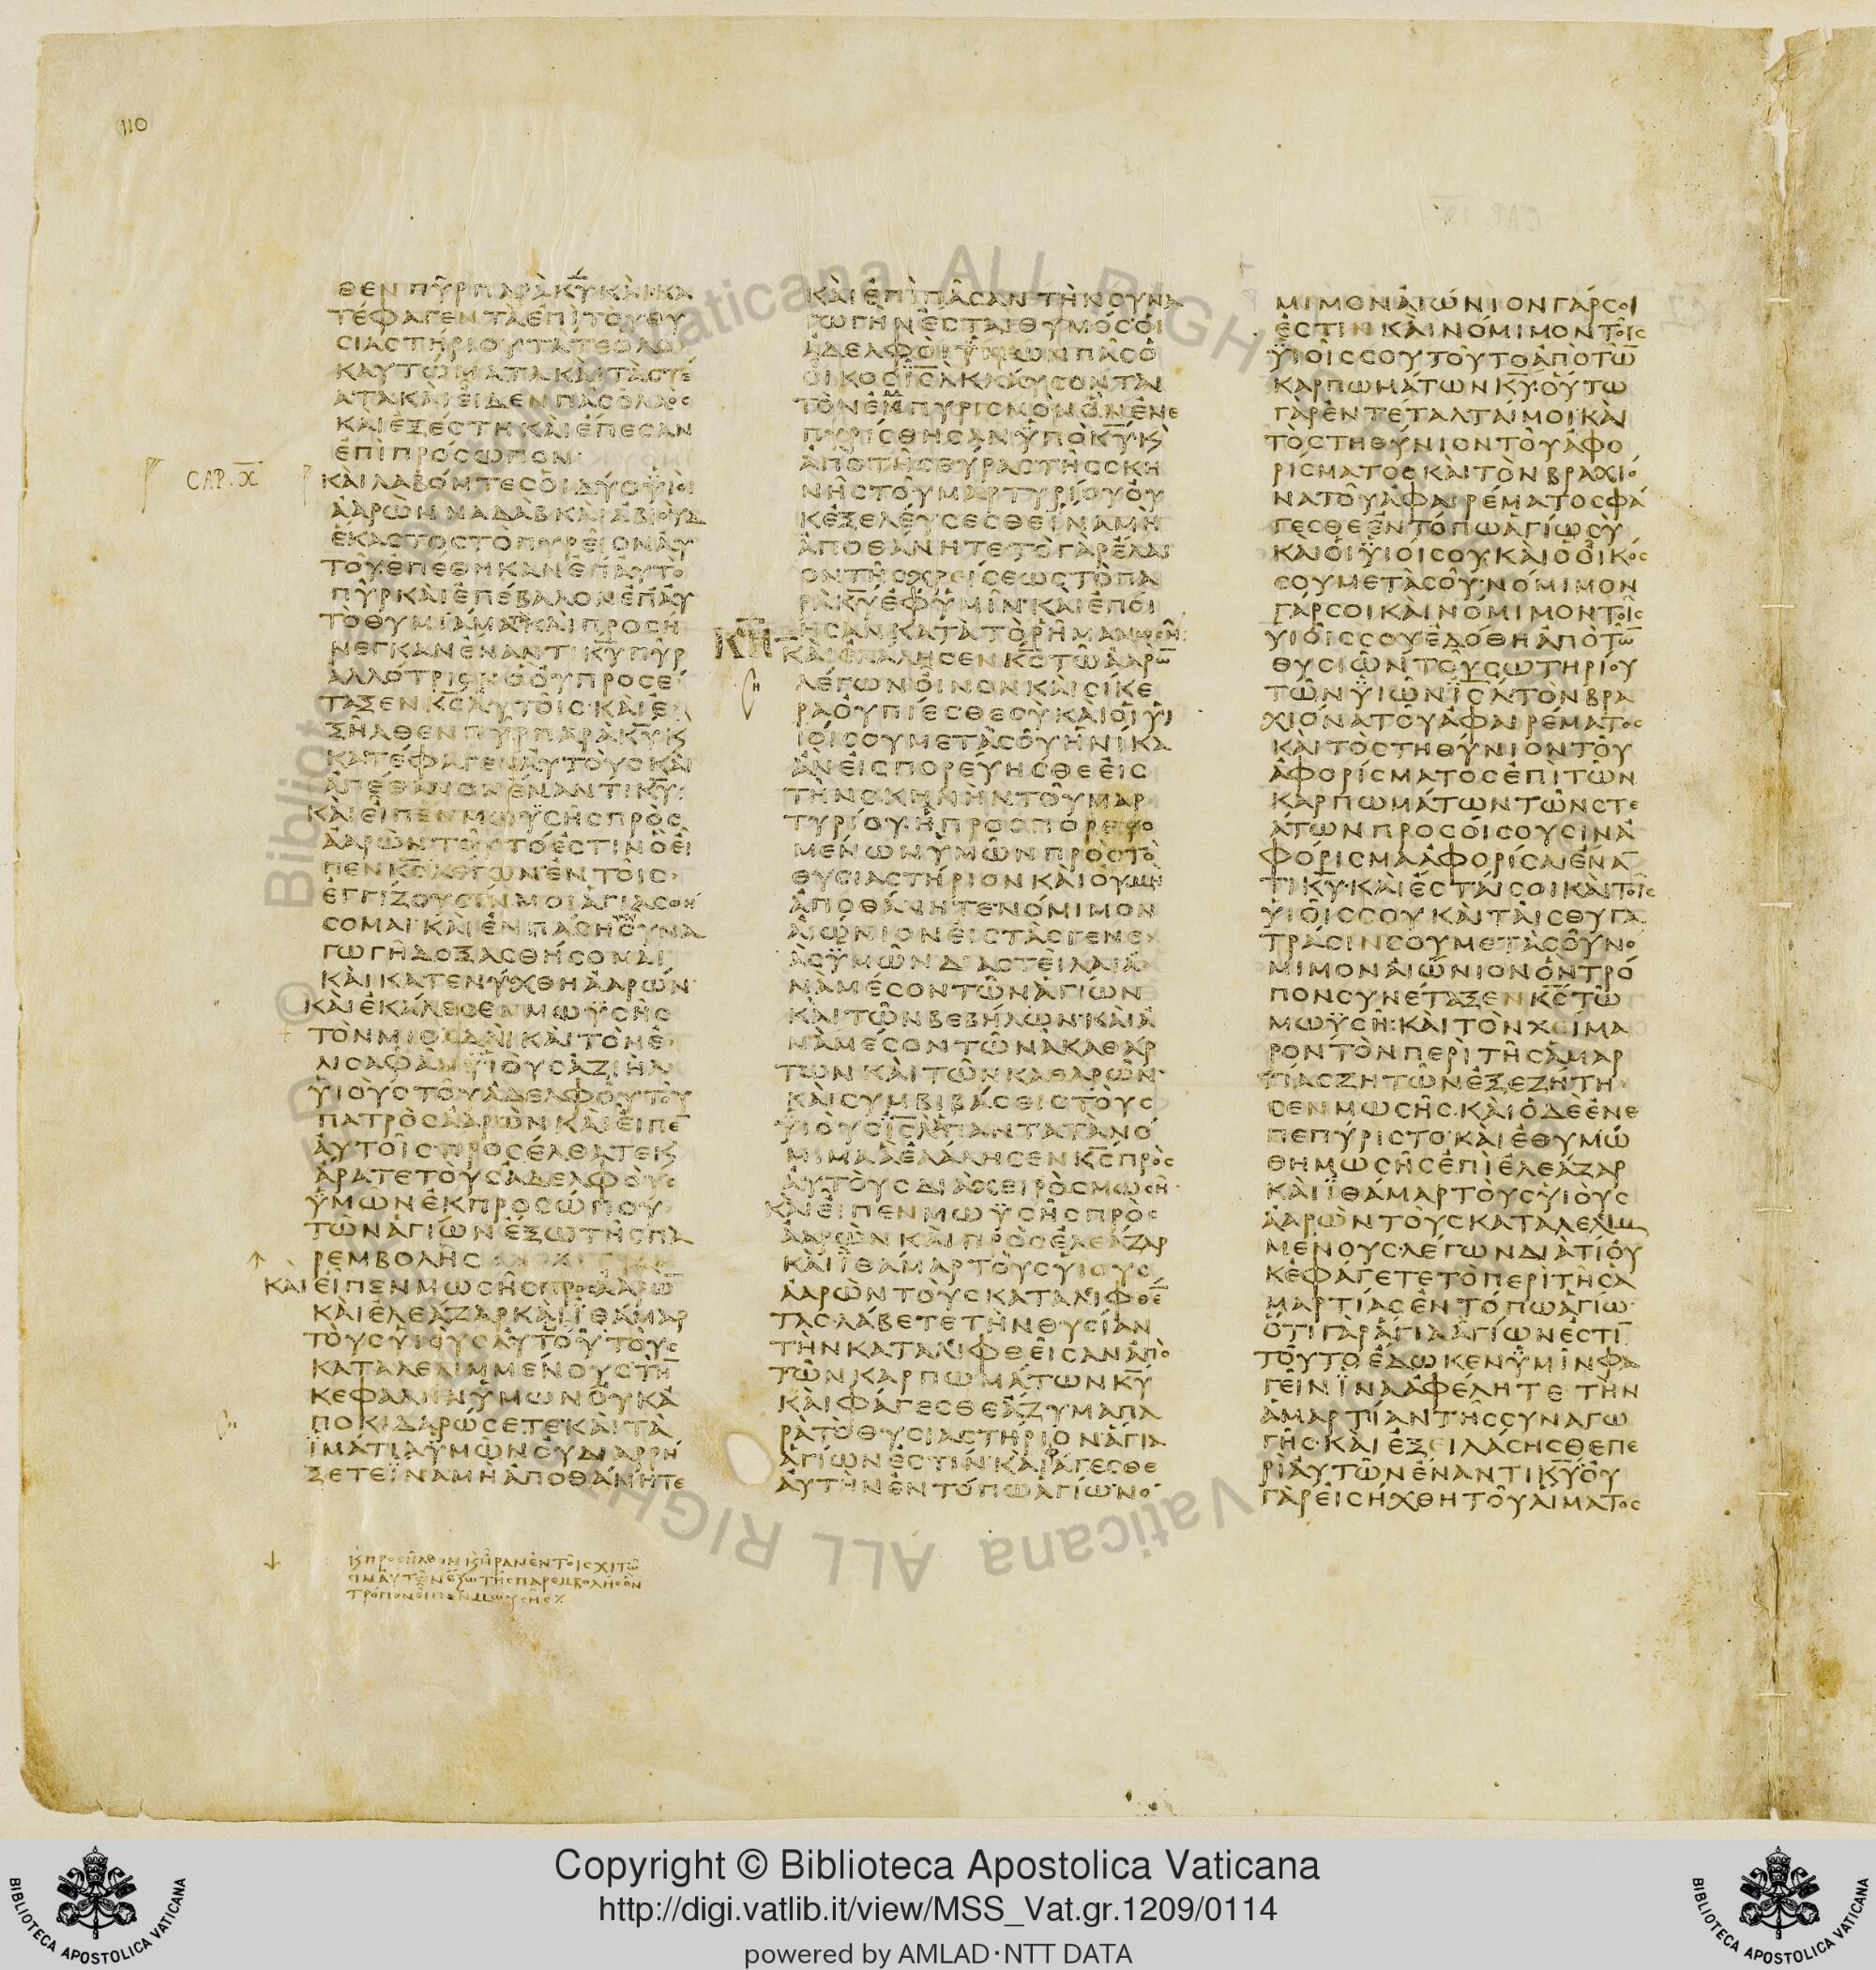 110
ΘΕΝ ΠΥΡ ΠΑΡΑ ΚΥ ΚΑΙ ΚΑ
ΤΕΦΑΓΕΝ ΤΑ ΕΠΙ ΤΟΥ ΘΥ
ΣΙΑΣΤΗΡΙΟΥ ΤΑ ΤΕ ΟΛΟ
ΚΑΥΤΩΜΑΤΑ ΚΑΙ ΤΑ ΣΤΕ
ΑΤΑ ΚΑΙ ΕΙΔΕΝ ΠΑΣ Ο ΛΑΟΣ
ΚΑΙ ΕΞΕΣΤΗ ΚΑΙ ΕΠΕΣΑΝ
ΕΠΙ ΠΡΟΣΩΠΟΝ
CAP. X
ΚΑΙ ΛΑΒΟΝΤΕΣ ΟΙ ΔΥΟ ΥΙΟΙ
ΑΑΡΩΝ ΝΑΔΑΒ ΚΑΙ ΑΒΙΟΥΔ
ΕΚΑΣΤΟΣ ΤΟ ΠΥΡΕΙΟΝ ΑΥ
ΤΟΥ ΕΠΕΘΗΚΑΝ ΕΠ ΑΥΤΟ
ΠΥΡ ΚΑΙ ΕΠΕΒΑΛΟΝ ΕΠ ΑΥ
ΤΟ ΘΥΜΙΑΜΑ ΚΑΙ ΠΡΟΣΗ
ΝΕΓΚΑΝ ΕΝΑΝΤΙ ΚΥ ΠΥΡ
ΑΛΛΟΤΡΙΟΝ Ο ΟΥ ΠΡΟΣΕ
ΤΑΞΕΝ ΚΣ ΑΥΤΟΙΣ ΚΑΙ Ε
ΞΗΛΘΕΝ ΠΥΡ ΠΑΡΑ ΚΥ Κ
ΚΑΤΕΦΑΓΕΝ ΑΥΤΟΥΣ ΚΑΙ
ΑΠΕΘΑΝΟΝ ΕΝΑΝΤΙ ΚΥ
ΚΑΙ ΕΙΠΕΝ ΜΩΥΣΗΣ ΠΡΟΣ
ΑΑΡΩΝ ΤΟΥΤΟ ΕΣΤΙΝ Ο ΕΙ
ΠΕΝ ΚΣ ΛΕΓΩΝ ΕΝ ΤΟΙΣ
ΕΓΓΙΖΟΥΣΙΝ ΜΟΙ ΑΓΙΑΣΘΗ
ΣΟΜΑΙ ΚΑΙ ΕΝ ΠΑΣΗ ΣΥΝΑ
ΓΩΓΗ ΔΟΞΑΣΘΗΣΟΜΑΙ
ΚΑΙ ΚΑΤΕΝΥΧΘΗ ΑΑΡΩΝ
ΚΑΙ ΕΚΑΛΕΣΕΝ ΜΩΥΣΗΣ
ΤΟΝ ΜΙΣΑΔΑΙ ΚΑΙ ΤΟΝ Ε
ΛΙΣΑΦΑΝ ΥΙΟΥΣ ΑΖΙΗΛ
ΥΙΟΥΣ ΤΟΥ ΑΔΕΛΦΟΥ ΤΟΥ
ΠΑΤΡΟΣ ΑΑΡΩΝ ΚΑΙ ΕΙΠΕ
ΑΥΤΟΙΣ ΠΡΟΣΕΛΘΑΤΕ Κ
ΑΡΑΤΕ ΤΟΥΣ ΑΔΕΛΦΟΥΣ
ΥΜΩΝ ΕΚ ΠΡΟΣΩΠΟΥ
ΤΩΝ ΑΓΙΩΝ ΕΞΩ ΤΗΣ ΠΑ
ΡΕΜΒΟΛΗΣ
ΚΑΙ ΕΙΠΕΝ ΜΩΣΗΣ ΠΡΟΣ ΑΑΡΩ
ΚΑΙ ΕΛΕΑΖΑΡ ΚΑΙ ΙΘΑΜΑΡ
ΤΟΥΣ ΥΙΟΥΣ ΑΥΤΟΥ ΤΟΥΣ
ΚΑΤΑΛΕΛΙΜΜΕΝΟΥΣ ΤΗ
ΚΕΦΑΛΗΝ ΥΜΩΝ ΟΥΚ Α
ΠΟΚΙΔΑΡΩΣΕΤΕ ΚΑΙ ΤΑ
ΙΜΑΤΙΑ ΥΜΩΝ ΟΥ ΔΙΑΡΡΗ
ΞΕΤΕ ΙΝΑ ΜΗ ΑΠΟΘΑΝΗΤΕ
Κ ΠΡΟΣΗΛΘΟΝ Κ ΗΡΑΝ ΕΝ ΤΟΙΣ ΧΙΤΩ
ΣΙΝ ΑΥΤΩΝ ΕΞΩ ΤΗΣ ΠΑΡΕΜΒΟΛΗΣ ΟΝ
ΤΡΟΠΟΝ ΕΙΠΕΝ ΜΩΥΣΗΣ
ΚΑΙ ΕΠΙ ΠΑΣΑΝ ΤΗΝ ΣΥΝΑ
ΓΩΓΗΝ ΕΣΤΑΙ ΘΥΜΟΣ ΟΙ
ΑΔΕΛΦΟΙ ΥΜΩΝ ΠΑΣ Ο
ΟΙΚΟΣ ΙΣΛ ΚΛΑΥΣΟΝΤΑΙ
ΤΟΝ ΕΜΠΥΡΙΣΜΟΝ ΟΝ ΕΝΕ
ΠΥΡΙΣΘΗΣΑΝ ΥΠΟ ΚΥ Κ
ΑΠΟ ΤΗΣ ΘΥΡΑΣ ΤΗΣ ΣΚΗ
ΝΗΣ ΤΟΥ ΜΑΡΤΥΡΙΟΥ ΟΥ
Κ ΕΞΕΛΕΥΣΕΣΘΕ ΙΝΑ ΜΗ
ΑΠΟΘΑΝΗΤΕ ΤΟ ΓΑΡ ΕΛΑΙ
ΟΝ ΤΗΣ ΧΡΕΙΣΕΩΣ ΤΟ ΠΑ
ΡΑ ΚΥ ΕΦ ΥΜΙΝ ΚΑΙ ΕΠΟΙ
ΗΣΑΝ ΚΑΤΑ ΤΟ ΡΗΜΑ ΜΩΣΗ
ΚΗ
ΚΑΙ ΕΛΑΛΗΣΕΝ ΚΣ ΤΩ ΑΑΡΩ
ΛΕΓΩΝ ΟΙΝΟΝ ΚΑΙ ΣΙΚΕ
ΡΑ ΟΥ ΠΙΕΣΘΕ ΣΥ ΚΑΙ ΟΙ ΥΙ
ΙΟΙ ΣΟΥ ΜΕΤΑ ΣΟΥ ΗΝΙΚΑ
ΑΝ ΕΙΣΠΟΡΕΥΗΣΘΕ ΕΙΣ
ΤΗΝ ΣΚΗΝΗΝ ΤΟΥ ΜΑΡ
ΤΥΡΙΟΥ Η ΠΡΟΣΠΟΡΕΥΟ
ΜΕΝΩΝ ΥΜΩΝ ΠΡΟΣ ΤΟ
ΘΥΣΙΑΣΤΗΡΙΟΝ ΚΑΙ ΟΥ ΜΗ
ΑΠΟΘΑΝΗΤΕ ΝΟΜΙΜΟΝ
ΑΙΩΝΙΟΝ ΕΙΣ ΤΑΣ ΓΕΝΕ
ΑΣ ΥΜΩΝ ΔΙΑΣΤΕΙΛΑΙ Α
ΝΑ ΜΕΣΟΝ ΤΩΝ ΑΓΙΩΝ
ΚΑΙ ΤΩΝ ΒΕΒΗΛΩΝ ΚΑΙ Α
ΝΑ ΜΕΣΟΝ ΤΩΝ ΑΚΑΘΑΡ
ΤΩΝ ΚΑΙ ΤΩΝ ΚΑΘΑΡΩΝ
ΚΑΙ ΣΥΜΒΙΒΑΣΘΙΣ ΤΟΥΣ
ΥΙΟΥΣ ΙΣΛ ΠΑΝΤΑ ΤΑ ΝΟ
ΜΙΜΑ Α ΕΛΑΛΗΣΕΝ ΚΣ ΠΡΟΣ
ΑΥΤΟΥΣ ΔΙΑ ΧΕΙΡΟΣ ΜΩΣΗ
ΚΑΙ ΕΙΠΕΝ ΜΩΥΣΗΣ ΠΡΟΣ
ΑΑΡΩΝ ΚΑΙ ΠΡΟΣ ΕΛΕΑΖΑΡ
ΚΑΙ ΙΘΑΜΑΡ ΤΟΥΣ ΥΙΟΥΣ
ΑΑΡΩΝ ΤΟΥΣ ΚΑΤΑΛΙΦΘΕ
ΤΑΣ ΛΑΒΕΤΕ ΤΗΝ ΘΥΣΙΑΝ
ΤΗΝ ΚΑΤΑΛΙΦΘΕΙΣΑΝ ΑΠΟ
ΤΩΝ ΚΑΡΠΩΜΑΤΩΝ ΚΥ
ΚΑΙ ΦΑΓΕΣΘΕ ΑΖΥΜΑ ΠΑ
ΡΑ ΤΟ ΘΥΣΙΑΣΤΗΡΙΟΝ ΑΓΙΑ
ΑΓΙΩΝ ΕΣΤΙΝ ΚΑΙ ΦΑΓΕΣΘΕ
ΑΥΤΗΝ ΕΝ ΤΟΠΩ ΑΓΙΩ ΝΟ
ΜΙΜΟΝ ΑΙΩΝΙΟΝ ΓΑΡ ΣΟΙ
ΕΣΤΙΝ ΚΑΙ ΝΟΜΙΜΟΝ ΤΟΙΣ
ΥΙΟΙΣ ΣΟΥ ΤΟΥΤΟ ΑΠΟ ΤΩ
ΚΑΡΠΩΜΑΤΩΝ ΚΥ ΟΥΤΩ
ΓΑΡ ΕΝΤΕΤΑΛΤΑΙ ΜΟΙ ΚΑΙ
ΤΟ ΣΤΗΘΥΝΙΟΝ ΤΟΥ ΑΦΟ
ΡΙΣΜΑΤΟΣ ΚΑΙ ΤΟΝ ΒΡΑΧΙΟ
ΝΑ ΤΟΥ ΑΦΑΙΡΕΜΑΤΟΣ ΦΑ
ΓΕΣΘΕ ΕΝ ΤΟΠΩ ΑΓΙΩ ΣΥ
ΚΑΙ ΟΙ ΥΙΟΙ ΣΟΥ ΚΑΙ Ο ΟΙΚΟΣ
ΣΟΥ ΜΕΤΑ ΣΟΥ ΝΟΜΙΜΟΝ
ΓΑΡ ΣΟΙ ΚΑΙ ΝΟΜΙΜΟΝ ΤΟΙΣ
ΥΙΟΙΣ ΣΟΥ ΕΔΟΘΗ ΑΠΟ ΤΩ
ΘΥΣΙΩΝ ΤΟΥ ΣΩΤΗΡΙΟΥ
ΤΩΝ ΥΙΩΝ ΙΣΛ ΤΟΝ ΒΡΑ
ΧΙΟΝΑ ΤΟΥ ΑΦΑΙΡΕΜΑΤΟΣ
ΚΑΙ ΤΟ ΣΤΗΘΥΝΙΟΝ ΤΟΥ
ΑΦΟΡΙΣΜΑΤΟΣ ΕΠΙ ΤΩΝ
ΚΑΡΠΩΜΑΤΩΝ ΤΩΝ ΣΤΕ
ΑΤΩΝ ΠΡΟΣΟΙΣΟΥΣΙΝ Α
ΦΟΡΙΣΜΑ ΑΦΟΡΙΣΑΙ ΕΝΑ
ΤΙ ΚΥ ΚΑΙ ΕΣΤΑΙ ΣΟΙ ΚΑΙ ΤΟΙΣ
ΥΙΟΙΣ ΣΟΥ ΚΑΙ ΤΑΙΣ ΘΥΓΑ
ΤΡΑΣΙΝ ΣΟΥ ΜΕΤΑ ΣΟΥ ΝΟ
ΜΙΜΟΝ ΑΙΩΝΙΟΝ ΟΝ ΤΡΟ
ΠΟΝ ΣΥΝΕΤΑΞΕΝ ΚΣ ΤΩ
ΜΩΥΣΗ ΚΑΙ ΤΟΝ ΧΕΙΜΑ
ΡΟΝ ΤΟΝ ΠΕΡΙ ΤΗΣ ΑΜΑΡ
ΤΙΑΣ ΖΗΤΩΝ ΕΞΕΖΗΤΗ
ΣΕΝ ΜΩΣΗΣ ΚΑΙ ΟΔΕ ΕΝΕ
ΠΕΠΥΡΙΣΤΟ ΚΑΙ ΕΘΥΜΩ
ΘΗ ΜΩΣΗΣ ΕΠΙ ΕΛΕΑΖΑΡ
ΚΑΙ ΙΘΑΜΑΡ ΤΟΥΣ ΥΙΟΥΣ
ΑΑΡΩΝ ΤΟΥΣ ΚΑΤΑΛΕΛΙΜ
ΜΕΝΟΥΣ ΛΕΓΩΝ ΔΙΑ ΤΙ ΟΥ
Κ ΕΦΑΓΕΤΕ ΤΟ ΠΕΡΙ ΤΗΣ Α
ΜΑΡΤΙΑΣ ΕΝ ΤΟΠΩ ΑΓΙΩ
ΟΤΙ ΓΑΡ ΑΓΙΑ ΑΓΙΩΝ ΕΣΤΙ
ΤΟΥΤΟ ΕΔΩΚΕΝ ΥΜΙΝ ΦΑ
ΓΕΙΝ ΙΝΑ ΑΦΕΛΗΤΕ ΤΗΝ
ΑΜΑΡΤΙΑΝ ΤΗΣ ΣΥΝΑΓΩ
ΓΗΣ ΚΑΙ ΕΞΕΙΛΑΣΗΣΘΕ ΠΕ
ΡΙ ΑΥΤΩΝ ΕΝΑΝΤΙ ΚΥ ΟΥ
ΓΑΡ ΕΙΣΗΧΘΗ ΤΟΥ ΑΙΜΑΤΟΣ
Copyright © Biblioteca Apostolica Vaticana
http://digi.vatlib.it/view/MSS_Vat.gr.1209/0114
powered by AMLAD·NTT DATA
BIBLIOTECA APOSTOLICA VATICANA
BIBLIOTECA APOSTOLICA VATICANA